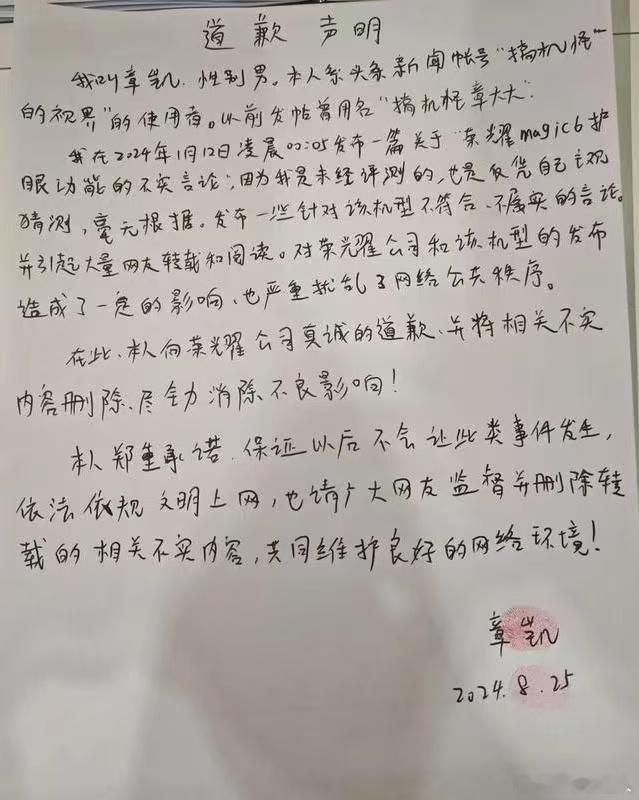 道歉声明
我叫章凯.性别男。本人系头条新闻帐号"搞机怪
的视界"的使用者。以前发帖曾用名"搞机怪章大大".
我在2024年1月12日凌晨00:05发布一篇关于"荣耀magic6护
眼功能的不实言论",因为我是未经评测的,也是仅凭自己主观
猜测,毫无根据。发布一些针对该机型不符合、不属实的言论。
并引起大量网友转载和阅读。对荣耀公司和该机型的发布
造成了一定的影响、也严重扰乱了网络公共秩序。
在此、本人向荣耀公司真诚的道歉、并将相关不实
内容删除、尽全力消除不良影响!
本人郑重承诺.保证以后不会让此类事件发生,
依法依规文明上网,也请广大网友监督并删除转
载的相关不实内容,共同维护良好的网络环境!
章凯
2024.8.25